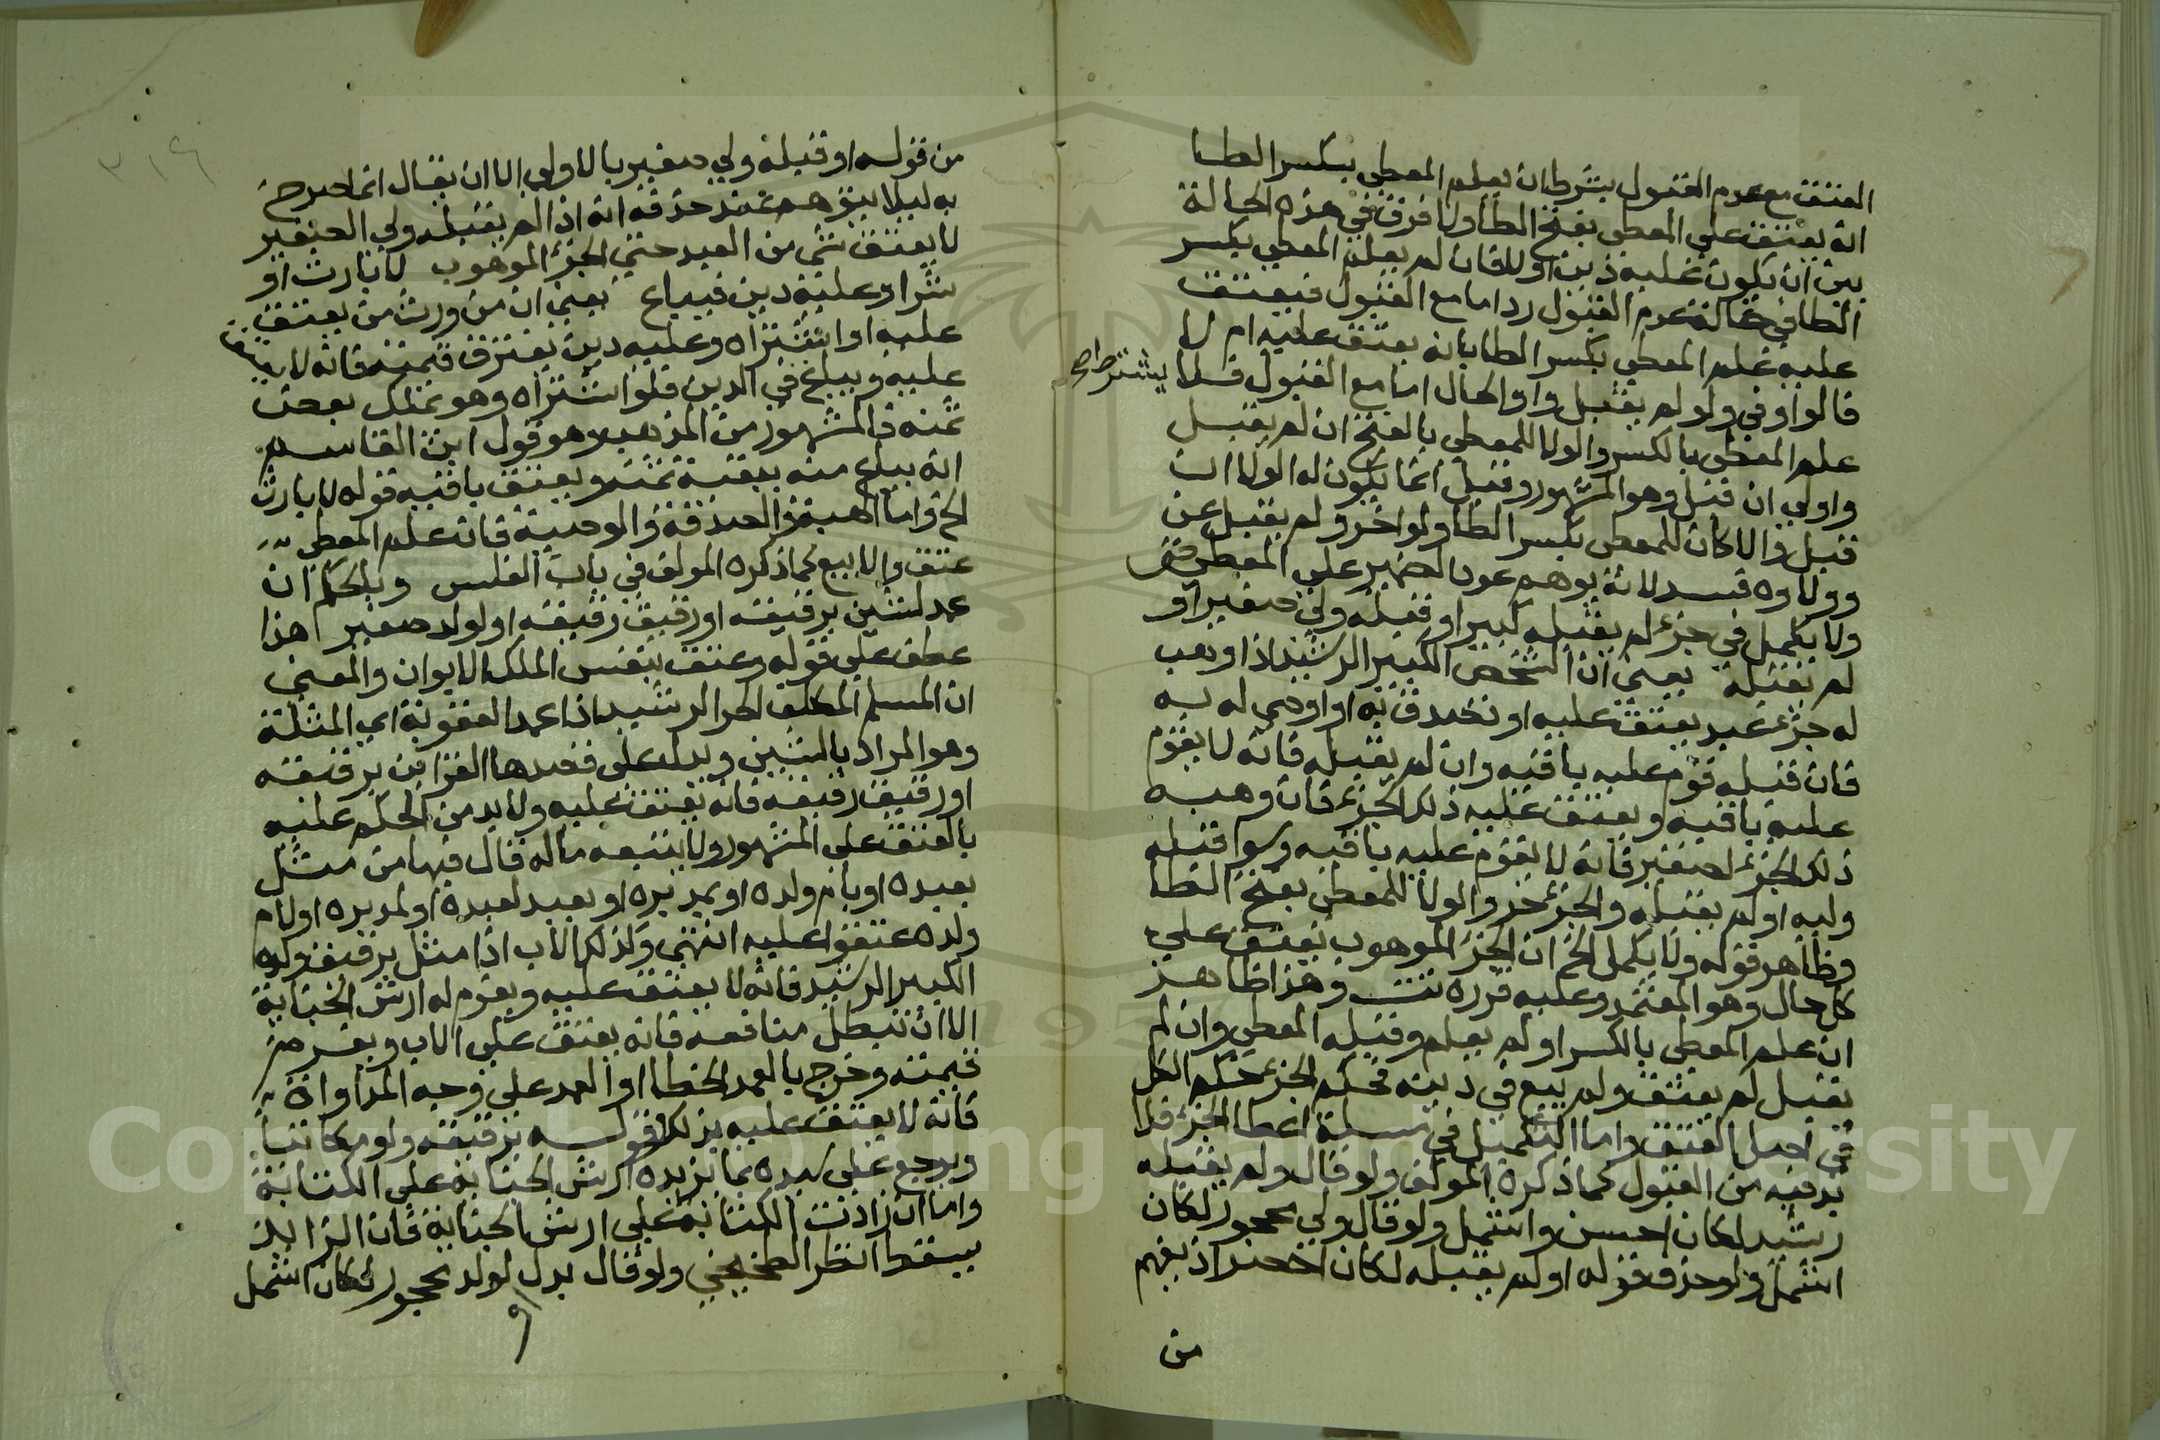 العتق مع عدم القبول بشرط ان يعلم المعطي بكسر الطا
انه يعتق على المعطى بفتح الطا ولا فرق في هذه الحالة
بين ان يكون عليه دين او لا فان لم يعلم المعطي بكسر
الطا في حالة عدم القبول رد اما مع القبول فيعتق
عليه علم المعطي بكسر الطا بانه يعتق عليه ام لا
قالوا وفي ولو لم يقبل واو الحال اما مع القبول فلا يشترط صح
علم المعطي بالكسر والولا للمعطى بالفتح ان لم يقبل
واولى ان قبل وهو المشهور وقيل انما يكون له الولا ان
قبل والا كان للمعطي بكسر الطا ولو اخر ولم يقبل عن
وولاوه فسد لانه يوهم عود الضمير على المعطي
ولا يكمل في جزء لم يقبله كبير او قبله ولي صغير او
لم يقبله يعني ان الشخص الكبير الرشيد اذا وهب
له جزء عبد يعتق عليه او تصدق به او اوصي له به
فان قبله قوم عليه باقيه وان لم يقبله فانه لا يقوم
عليه باقيه ويعتق عليه ذلك الجزء فان وهب
ذلك الجزء لصغير فانه لا يقوم عليه باقيه وسوا قبله
وليه او لم يقبله والجزء حر والولا للمعطى بفتح الطا
وظاهر قوله ولا يكمل الخ ان الجزء الموهوب يعتق على
كل حال وهو المعتمد وعليه قرره تت وهذا ظاهر
ان علم المعطي بالكسر او لم يعلم وقبله المعطى وان لم
يقبل لم يعتق ولم يبع في دينه فحكم الجزء حكم الكل
في اصل العتق واما التكميل في مسلة اعطا الجزء فلا
بد فيه من القبول كما ذكره المولف ولو قال ولم يقبله
رشيد لكان احسن واشمل ولو قال ولي محجور لكان
اشمل ولو حذف قوله او لم يقبله لكان اخصر اذ يفهم
من
من قوله او قبله ولي صغير بالاولى الا ان يقال انما صرح
به ليلا يتوهم عند حذفه انه اذا لم يقبله ولي الصغير
لا يعتق شي من العبد حتى الجزء الموهوب لا بارث او
شرا وعليه دين فيباع يعني ان من ورث من يعتق
عليه او اشتراه وعليه دين يغترق قيمته فانه لا يعتق
عليه ويباع في الدين فلو اشتراه وهو يملك بعض
ثمنه فالمشهور من المذهب وهو قول ابن القاسم
انه يباع منه ببقية ثمنه ويعتق باقيه قوله لا بارث
الخ واما الهبة والصدقة والوصية فان علم المعطي
عتق والا بيع كما ذكره المولف في باب الفلس وبالحكم ان
عمد لشين برقيقه او رقيق رقيقه او لولد صغير هذا
عطف على قوله وعتق بنفس الملك الابوان والمعنى
ان المسلم المكلف الحر الرشيد اذا عمد العقوبة اي المثلة
وهو المراد بالشين ويدل على قصدها القراين برقيقه
او رقيق رقيقه فانه يعتق عليه ولا بد من الحكم عليه
بالعتق على المشهور ولا يتبعه ماله قال فيها من مثل
بعبده او بام ولده او بمدبره او بعبد لعبده او لمدبره او لام
ولده عتقوا عليه انتهى وكذلك الاب اذا مثل برقيق ولده
الكبير الرشيد فانه لا يعتق عليه ويغرم له ارش الجناية
الا ان تبطل منافعه فانه يعتق على الاب ويغرم
قيمته وخرج بالعمد الخطا او العمد على وجه المداواة
فانه لا يعتق عليه بذلك قوله برقيقه ولو مكاتبا
ويرجع على سيده بما يزيده ارش الجناية على الكتابة
واما ان زادت الكتابة على ارش الجناية فان الزايد
يسقط انظر الطخيخي ولو قال بدل لولد محجور لكان اشمل